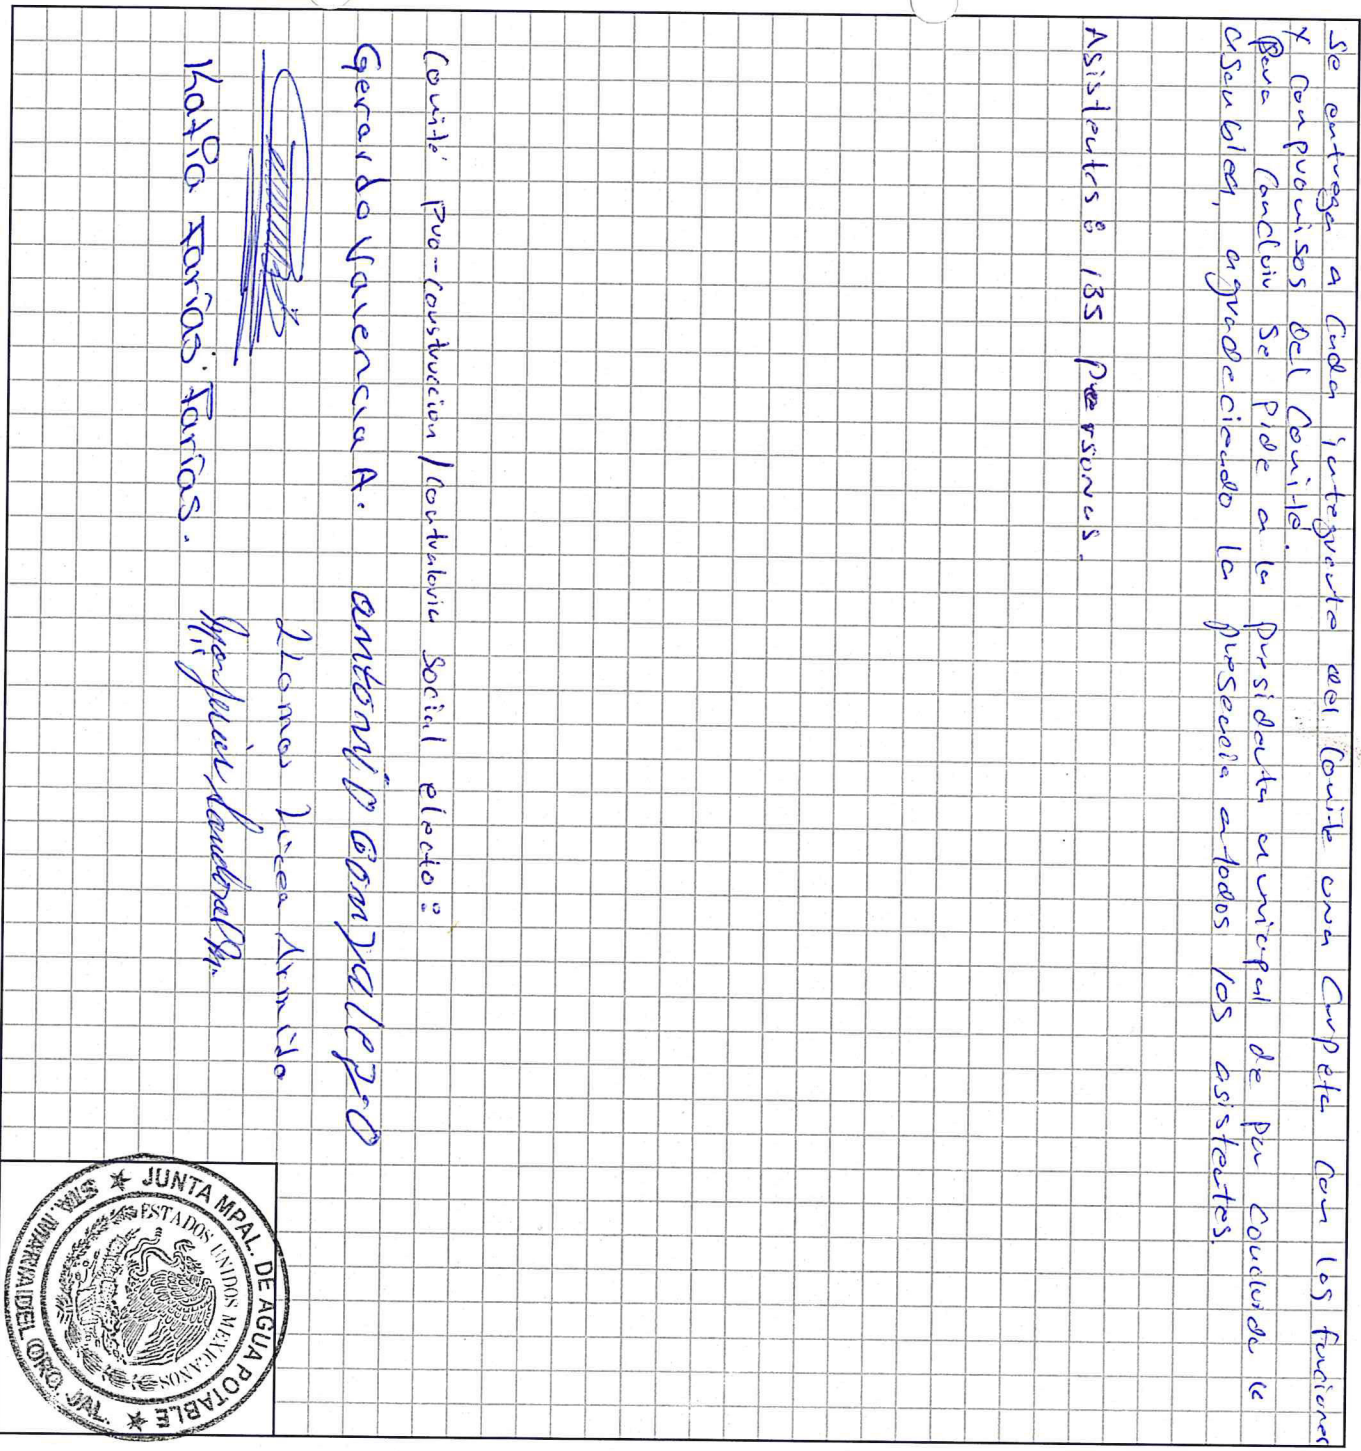 Se entrega a Cada integrante del Comite una Carpeta Con las funciones
y Compromisos del Comité.
Para Concluir Se pide a la presidenta municipal de por Concluida la
asamblea, agradeciendo la presencia a todos los asistentes.
Asistentes: 135 personas.
Comité Pro-Construccion/Contraloria Social electo:
Gerardo Valencia A. antonio Gonzalez O
Katia Farías Farías.
JUNTA MPAL. DE AGUA POTABLE
STA. MARIA DEL ORO, JAL.
ESTADOS UNIDOS MEXICANOS